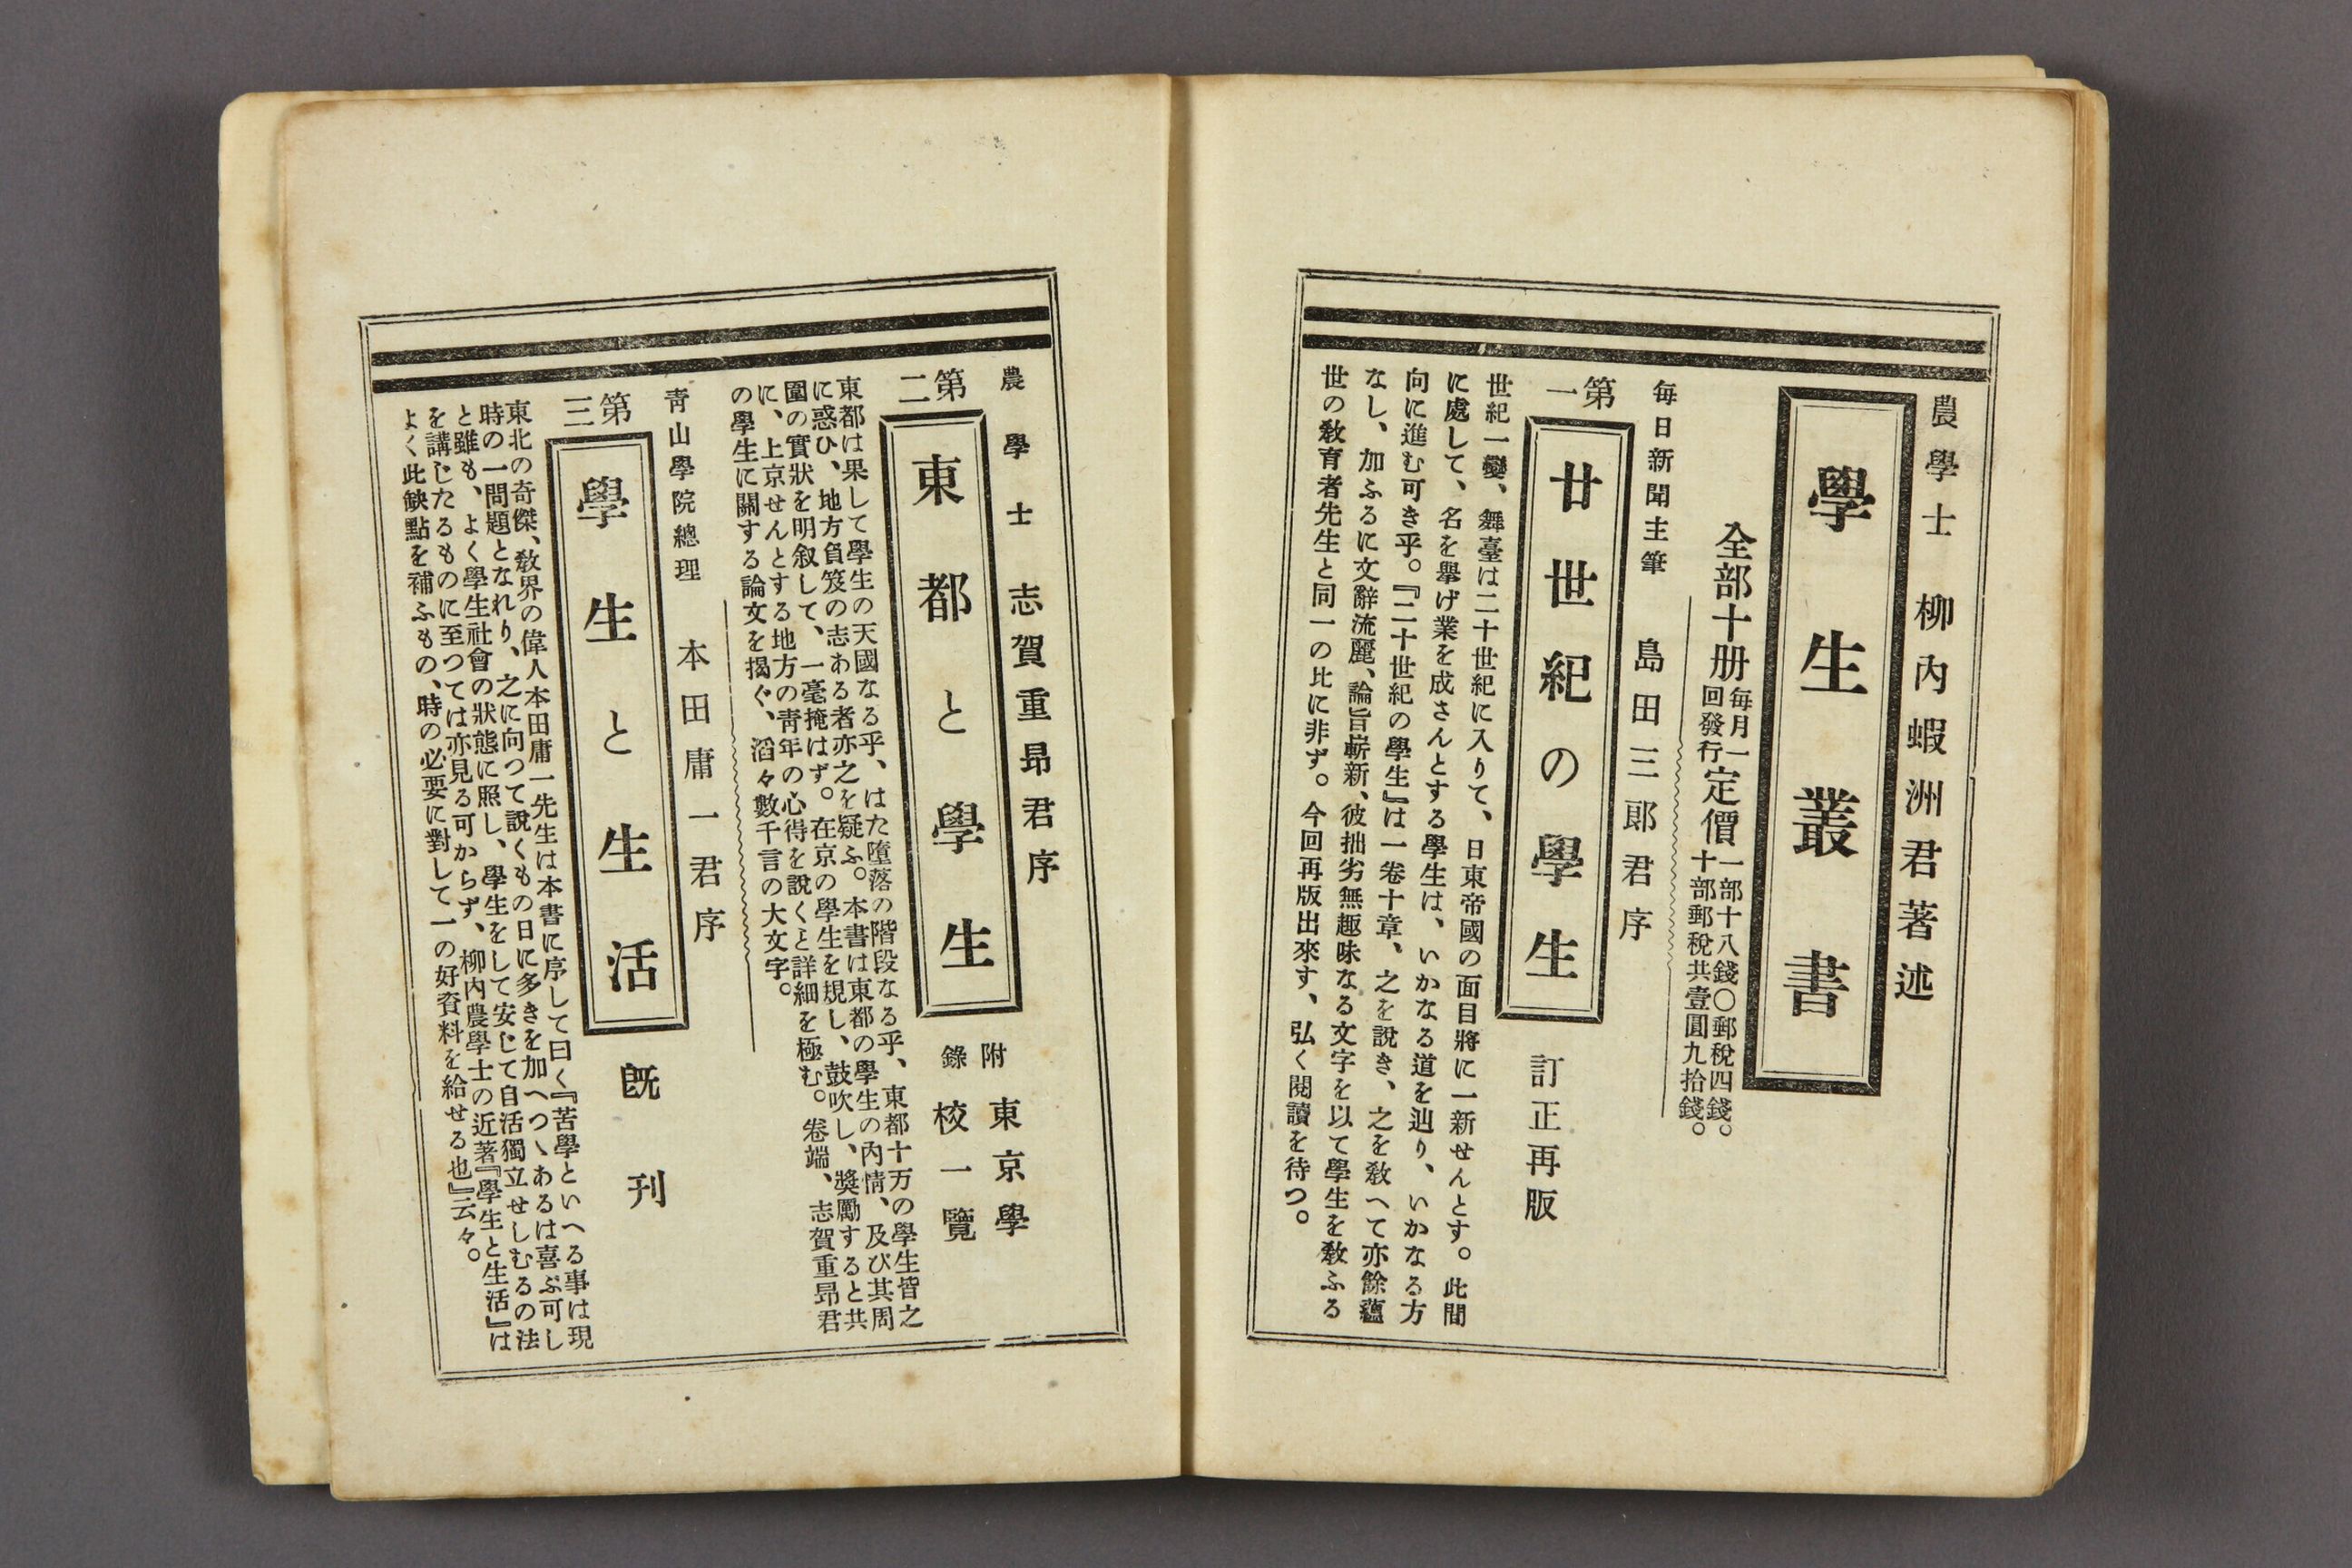 農學士 柳內蝦洲君著述
學生叢書
全部十册 每月一回發行 定價 一部十八錢〇郵稅四錢。十部郵稅共壹圓九拾錢。
每日新聞主筆 島田三郞君序
第一
廿世紀の學生
訂正再版
世紀一變、舞臺は二十世紀に入りて、日東帝國の面目將に一新せんとす。此間
に處して、名を擧げ業を成さんとする學生は、いかなる道を辿り、いかなる方
向に進む可き乎。『二十世紀の學生』は一卷十章、之を說き、之を敎へて亦餘蘊
なし、加ふるに文辭流麗、論旨嶄新、彼拙劣無趣味なる文字を以て學生を敎ふる
世の敎育者先生と同一の比に非ず。今回再版出來す、弘く閱讀を待つ。
農學士 志賀重昂君序
第二
東都と學生
附錄 東京學校一覽
東都は果して學生の天國なる乎、はた墮落の階段なる乎、東都十万の學生皆之
に惑ひ、地方負笈の志ある者亦之を疑ふ。本書は東都の學生の內情、及び其周
圍の實狀を明叙して、一毫掩はず。在京の學生を規し、鼓吹し、獎勵すると共
に、上京せんとする地方の靑年の心得を說くと詳細を極む。卷端、志賀重昂君
の學生に關する論文を揭ぐ、滔々數千言の大文字。
靑山學院總理 本田庸一君序
第三
學生と生活
既刊
東北の奇傑、敎界の偉人本田庸一先生は本書に序して曰く『苦學といへる事は現
時の一問題となれり、之に向つて說くもの日に多きを加へつゝあるは喜ぶ可し
と雖も、よく學生社會の狀態に照し、學生をして安じて自活獨立せしむるの法
を講じたるものに至つては亦見る可からず、柳內農學士の近著『學生と生活』は
よく此缺點を補ふもの、時の必要に對して一の好資料を給せる也』云々。